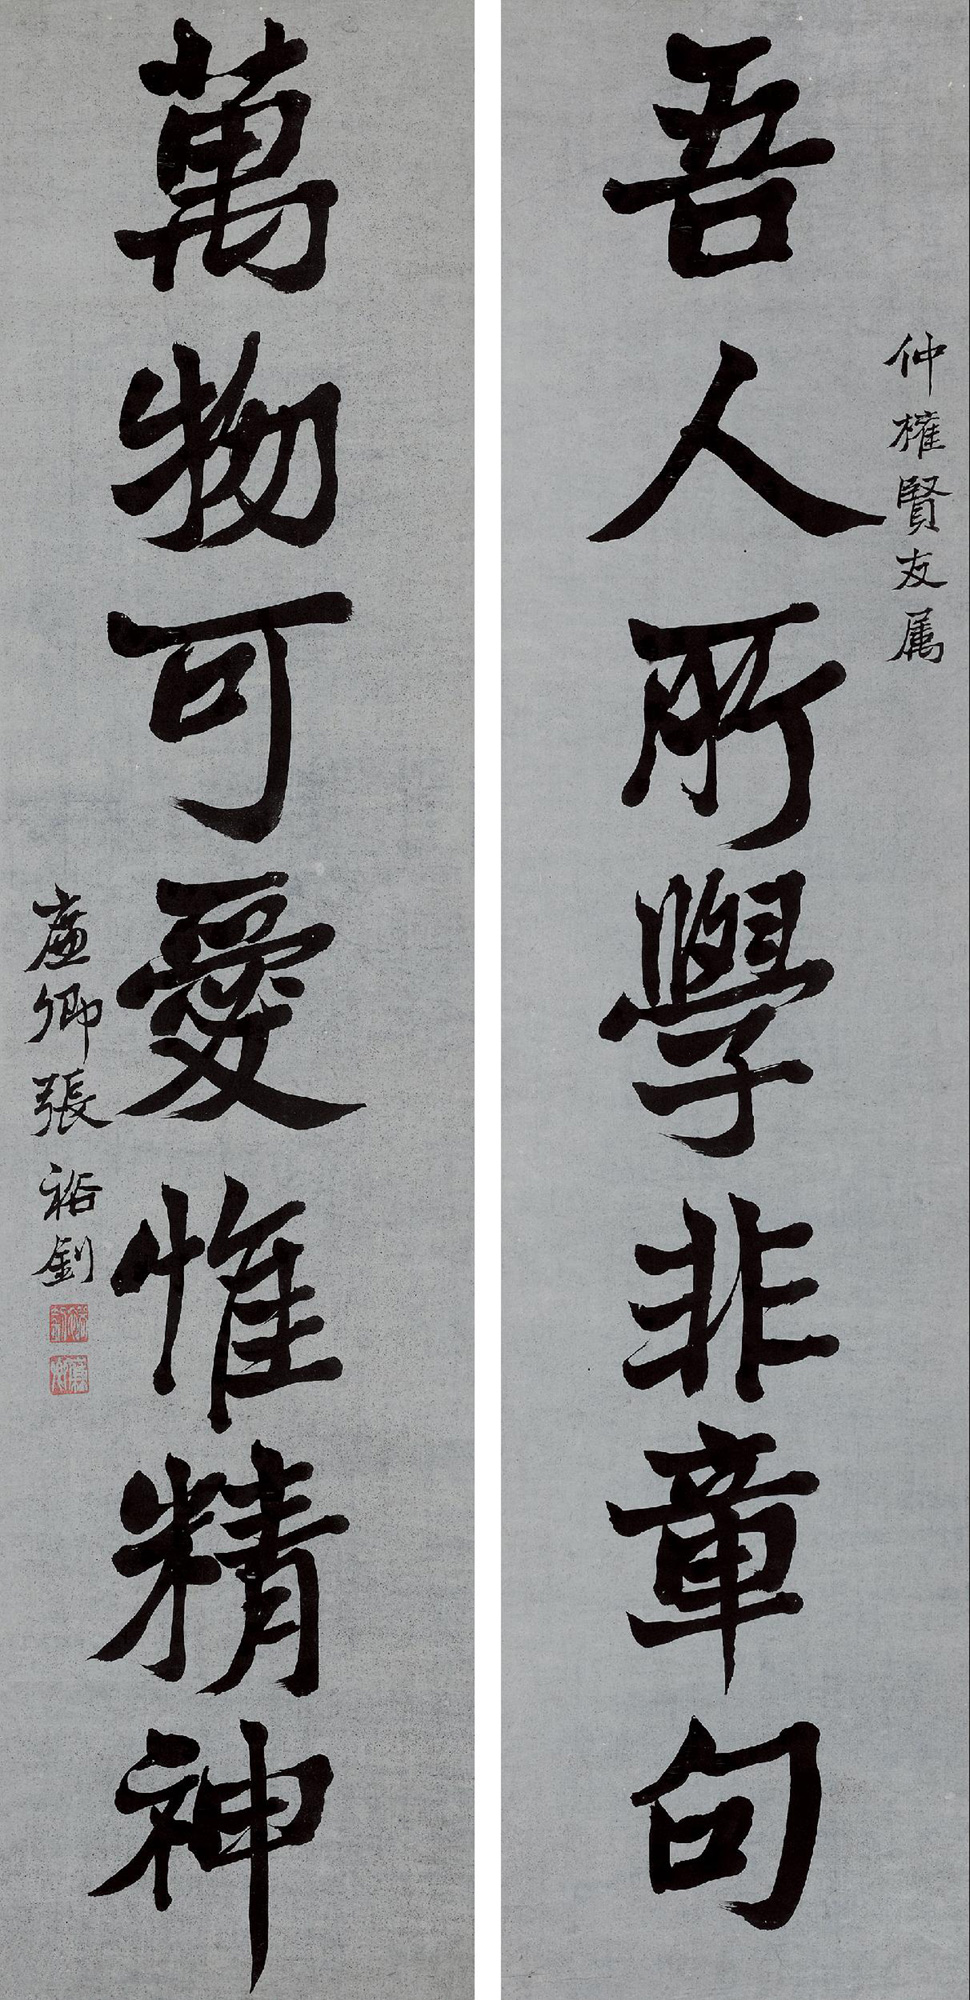 吾人所學非章句
仲榷賢友属
萬物可愛惟精神
廉卿張裕釗